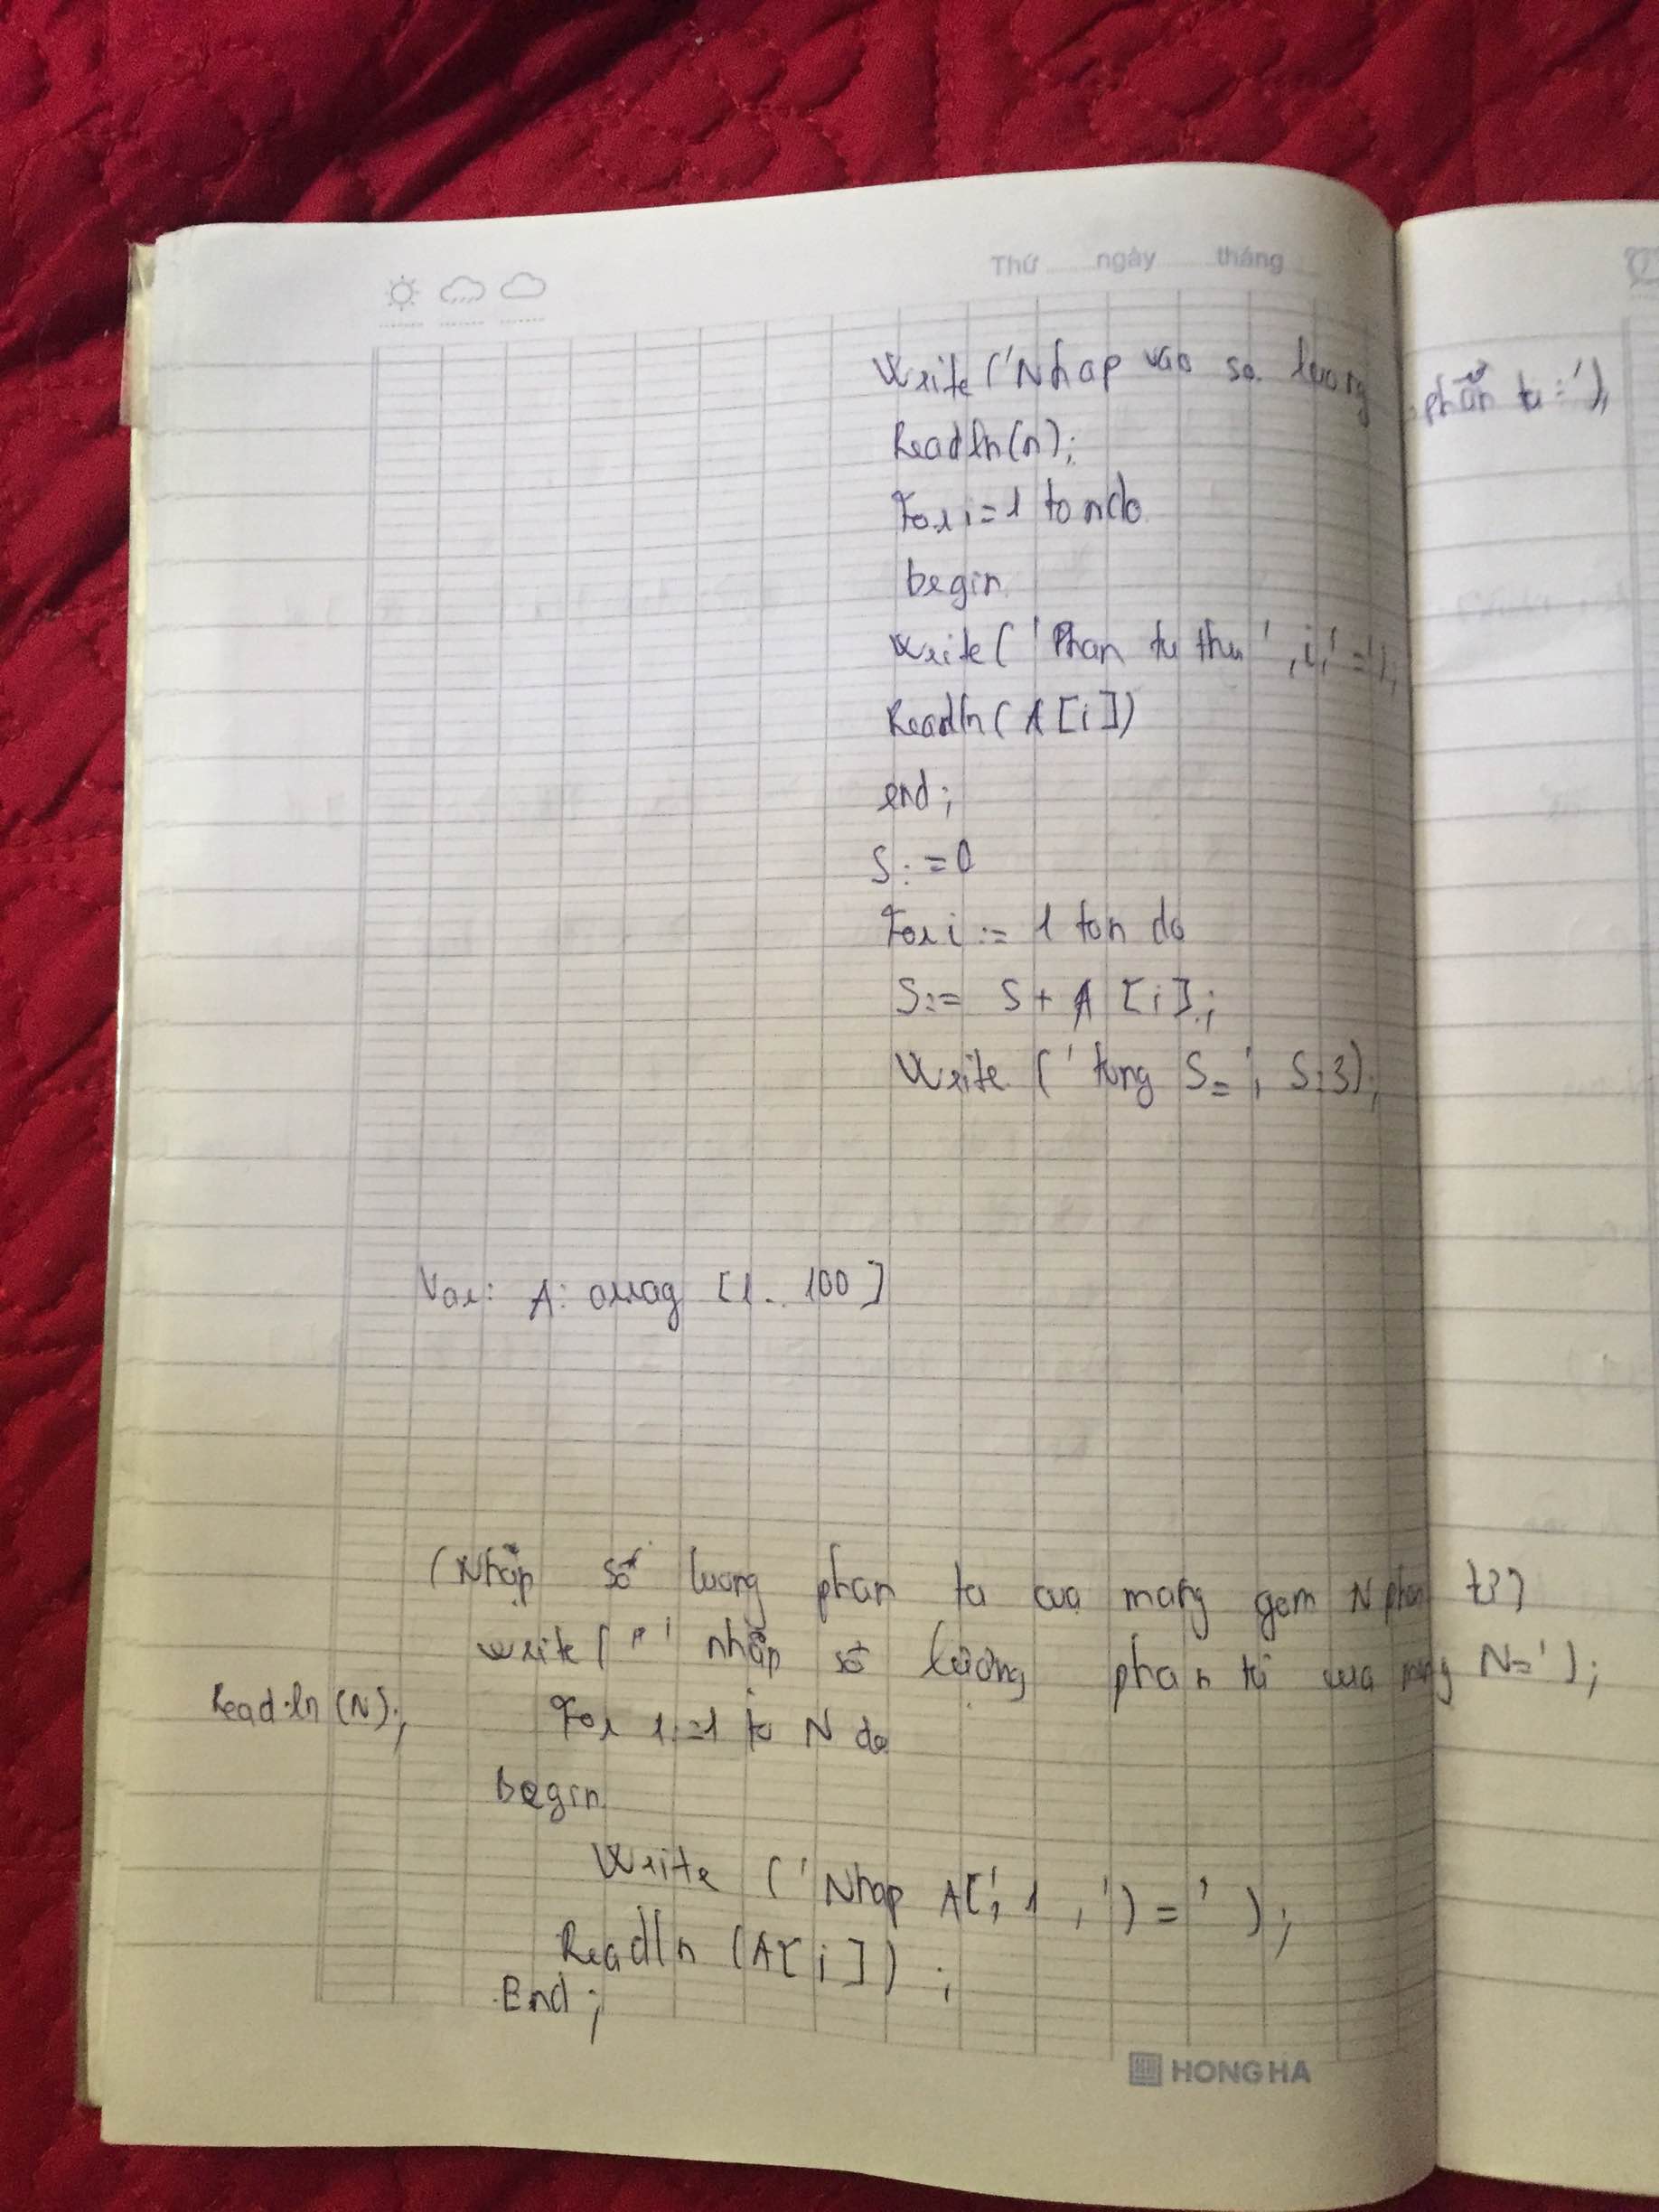 Thứ ngày tháng
Write ('Nhap vao so luong phần tu :');
Readln(n);
For i=1 to n do
begin
Write ( ' Phan tu thu ' , i,' =');
Readln( A [i])
end;
S:=0
For i := 1 to n do
S:= S + A [i];
Write ( ' tung S= ', S:3);
Var: A: array [1.. 100]
(Nhập số luong phan tu cua mang gom N phan tử)
write ( " ' nhập số lượng phan tử cua mang N=' );
Readln (N);
For 1:=1 to N do
begin
Write ( ' Nhap A[', 1 , ') = ' ) ;
Readln (A[ i ]) ;
End ;
HONG HA